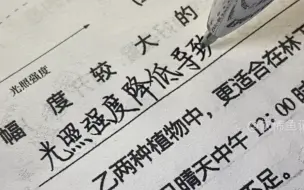 光照强度
幅度较大的
光照强度降低导致
乙两种植物中，更适合在林下
晴天中午11：00时
不足。